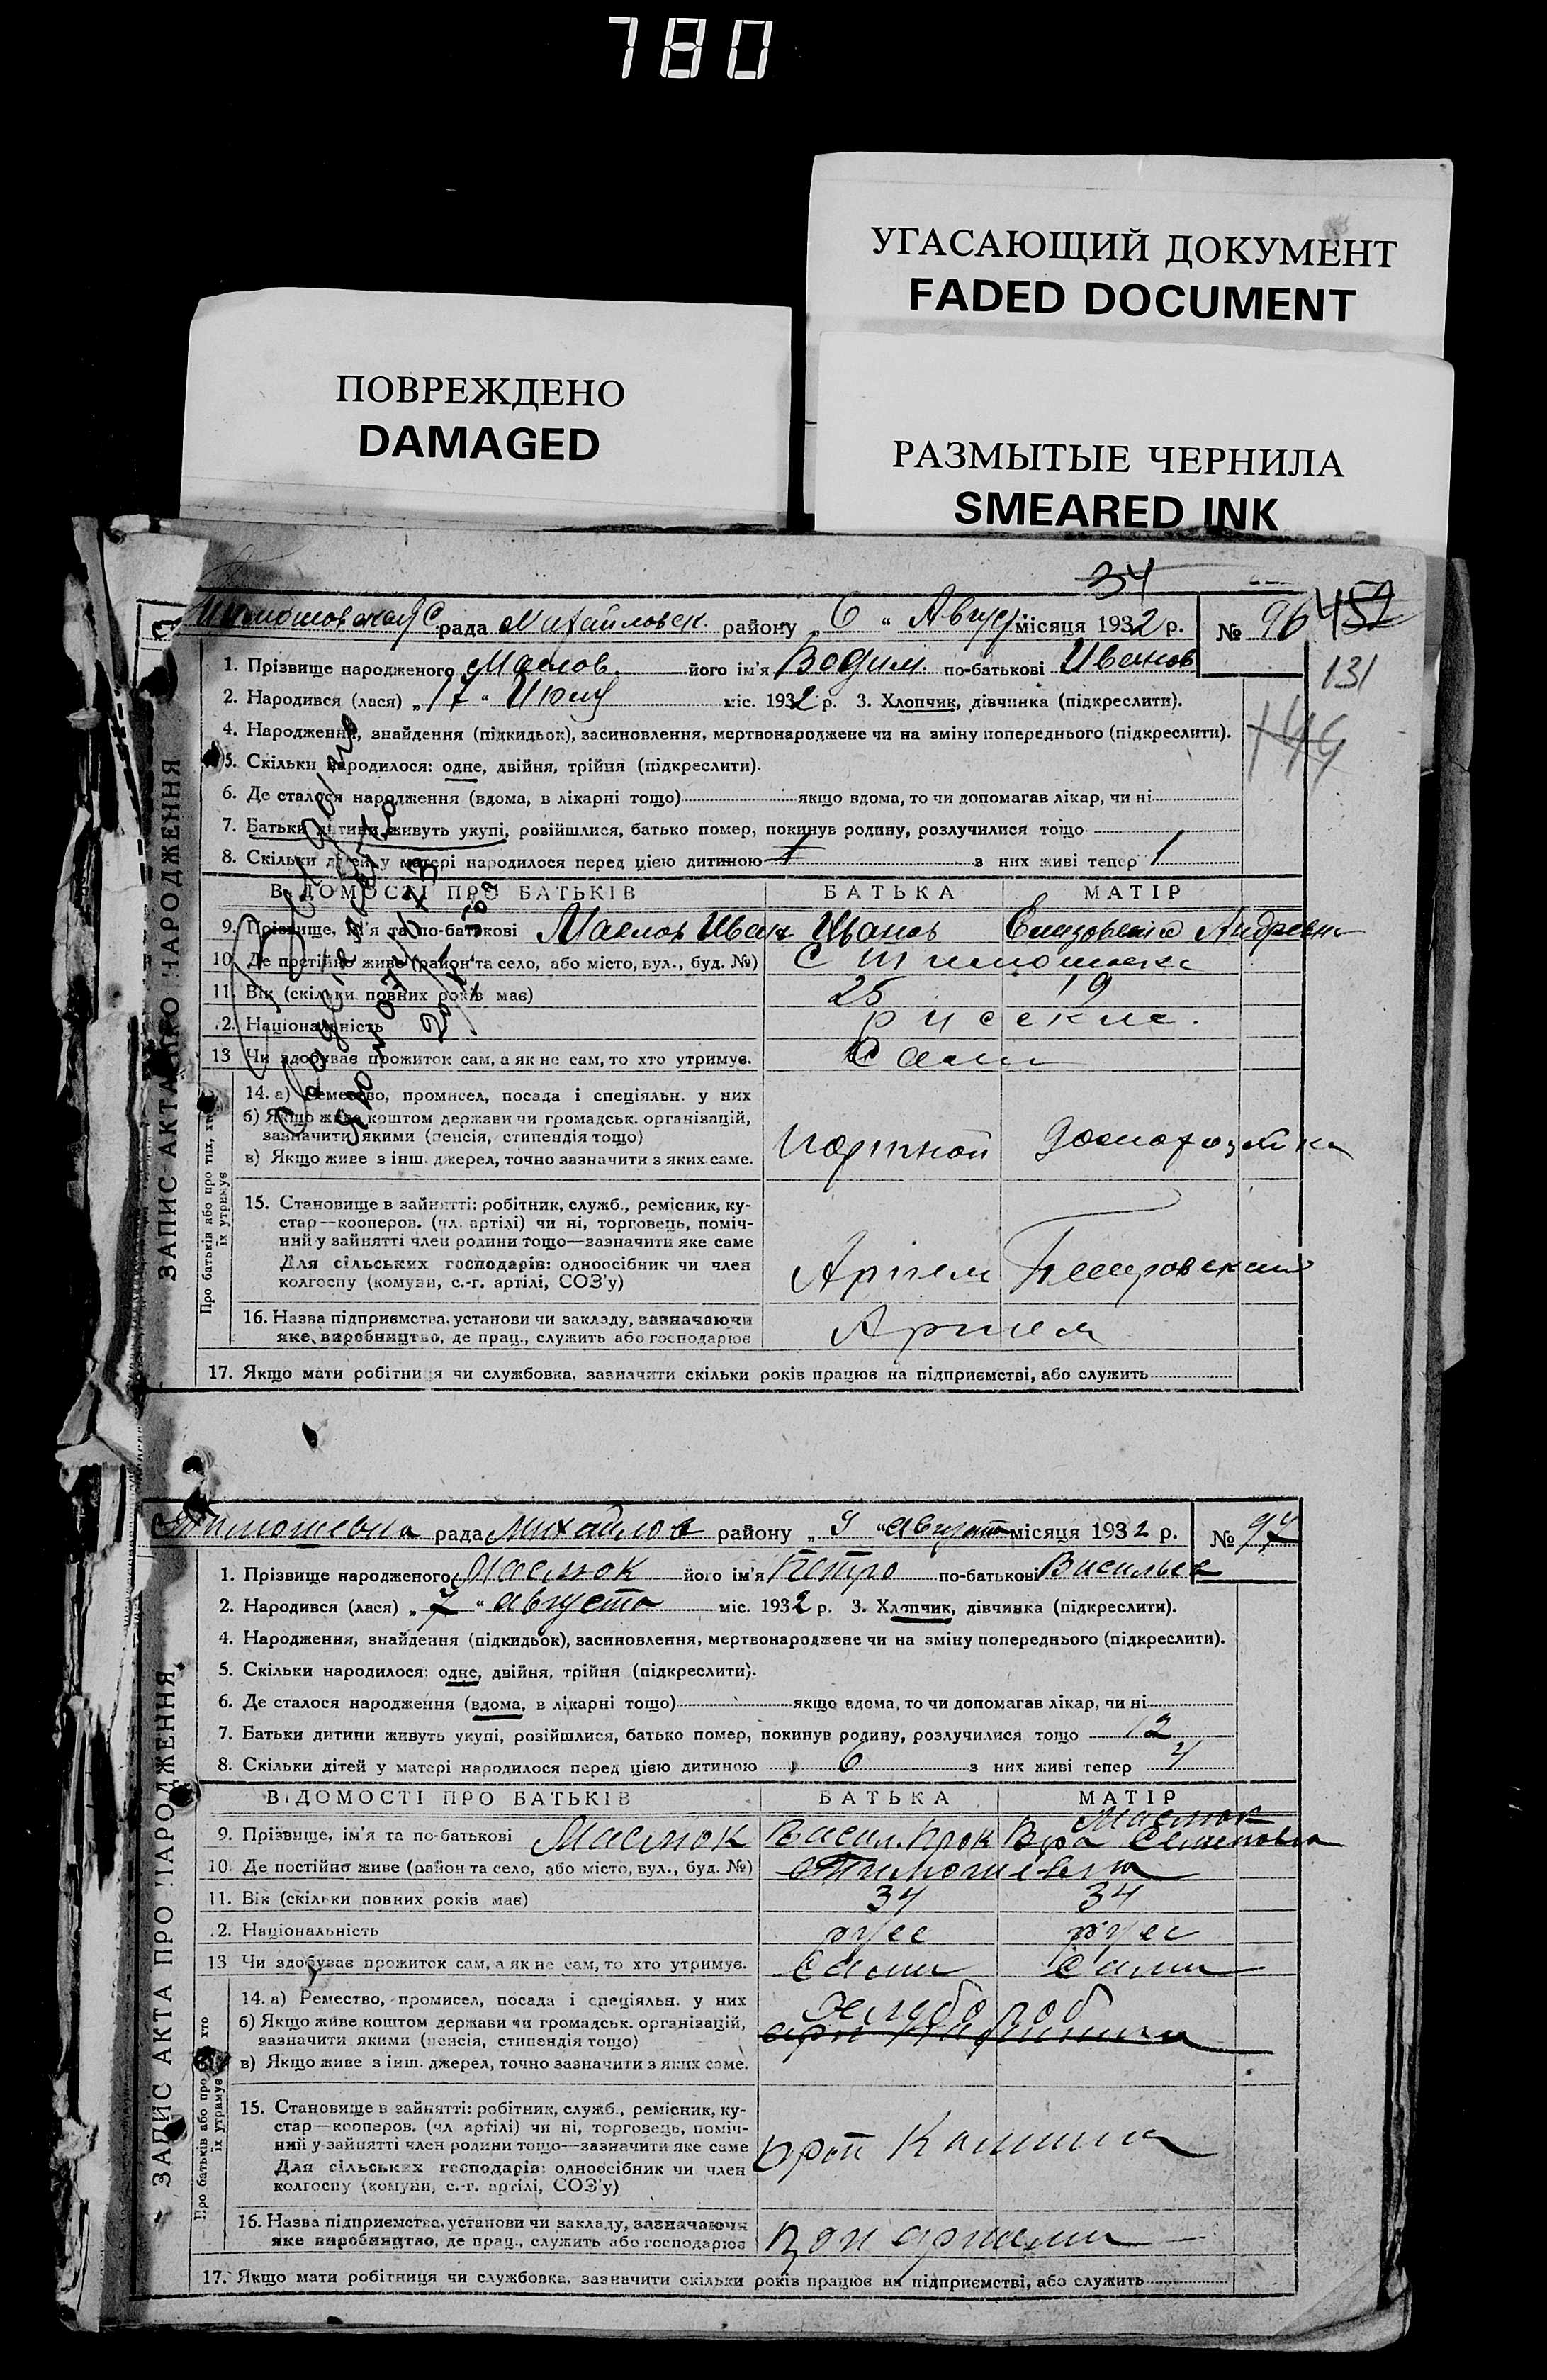 780
УГАСАЮЩИЙ ДОКУМЕНТ
FADED DOCUMENT
ПОВРЕЖДЕНО
DAMAGED
РАЗМЫТЫЕ ЧЕРНИЛА
SMEARED INK
34
рада Михайловск. району „6“ Август місяця 1932 р. № 96
131
ЗАПИС АКТА ПРО НАРОДЖЕННЯ
1. Прізвище народженого Маслов його ім'я Вадим по-батькові Иванов
2. Народився (лася) „17“ Июля міс. 1932 р. 3. Хлопчик, дівчинка (підкреслити).
4. Народження, знайдення (підкидьок), засиновлення, мертвонароджене чи на зміну попереднього (підкреслити).
144
5. Скільки народилося: одне, двійня, трійня (підкреслити).
6. Де сталося народження (вдома, в лікарні тощо) якщо вдома, то чи допомагав лікар, чи ні
7. Батьки дитини живуть укупі, розійшлися, батько помер, покинув родину, розлучилися тощо
8. Скільки дітей у матері народилося перед цією дитиною 1 з них живі тепер 1
ВІДОМОСТІ ПРО БАТЬКІВ БАТЬКА МАТІР
9. Прізвище, ім'я та по-батькові Маслов Иван Иванов Андреевна
10. Де постійно живе (район та село, або місто, вул., буд. №) С
11. Вік (скільки повних років має) 25 19
12. Національність русские.
13 Чи здобував прожиток сам, а як не сам, то хто утримує. Сами
Про батьків або про тих, хто їх утримує
14. а) Ремество, промисел, посада і спеціяльн. у них
б) Якщо живе коштом держави чи громадськ. організацій,
зазначити якими (пенсія, стипендія тощо)
в) Якщо живе з інш. джерел, точно зазначити з яких саме.
Портной домохозяйка
15. Становище в зайнятті: робітник, служб., ремісник, ку-
стар—кооперов. (чл. артілі) чи ні, торговець, поміч-
ний у зайнятті член родини тощо—зазначити яке саме
Для сільських господарів: одноосібник чи член
колгоспу (комуни, с.-г. артілі, СОЗ'у)
Артель
16. Назва підприємства, установи чи закладу, зазначаючи
яке виробництво, де прац., служить або господарює
Артель
17. Якщо мати робітниця чи службовка, зазначити скільки років працює на підприємстві, або служить
Тимошевка рада Михайлов району „9“ августа місяця 1932 р. № 97
ЗАПИС АКТА ПРО НАРОДЖЕННЯ
1. Прізвище народженого Маслюк його ім'я Петро по-батькові Василье
2. Народився (лася) „7“ августа міс. 1932 р. 3. Хлопчик, дівчинка (підкреслити).
4. Народження, знайдення (підкидьок), засиновлення, мертвонароджене чи на зміну попереднього (підкреслити).
5. Скільки народилося: одне, двійня, трійня (підкреслити).
6. Де сталося народження (вдома, в лікарні тощо) якщо вдома, то чи допомагав лікар, чи ні
7. Батьки дитини живуть укупі, розійшлися, батько помер, покинув родину, розлучилися тощо 12
8. Скільки дітей у матері народилося перед цією дитиною 6 з них живі тепер 4
ВІДОМОСТІ ПРО БАТЬКІВ БАТЬКА МАТІР
Маслюк
9. Прізвище, ім'я та по-батькові Маслюк Васил. Прок Вера Семеновна
10. Де постійно живе (район та село, або місто, вул., буд. №) Тимошевка
11. Вік (скільки повних років має) 34 34
12. Національність русс русс
13 Чи здобував прожиток сам, а як не сам, то хто утримує. Сами Сами
Про батьків або про тих, хто їх утримує
14. а) Ремество, промисел, посада і спеціяльн. у них хлебороб
б) Якщо живе коштом держави чи громадськ. організацій,
зазначити якими (пенсія, стипендія тощо)
в) Якщо живе з інш. джерел, точно зазначити з яких саме.
15. Становище в зайнятті: робітник, служб., ремісник, ку-
стар—кооперов. (чл артілі) чи ні, торговець, поміч-
ний у зайнятті член родини тощо—зазначити яке саме
Для сільських господарів: одноосібник чи член
колгоспу (комуни, с.-г. артілі, СОЗ'у)
Калинина
16. Назва підприємства, установи чи закладу, зазначаючи
яке виробництво, де прац., служить або господарює
17. Якщо мати робітниця чи службовка, зазначити скільки років працює на підприємстві, або служить